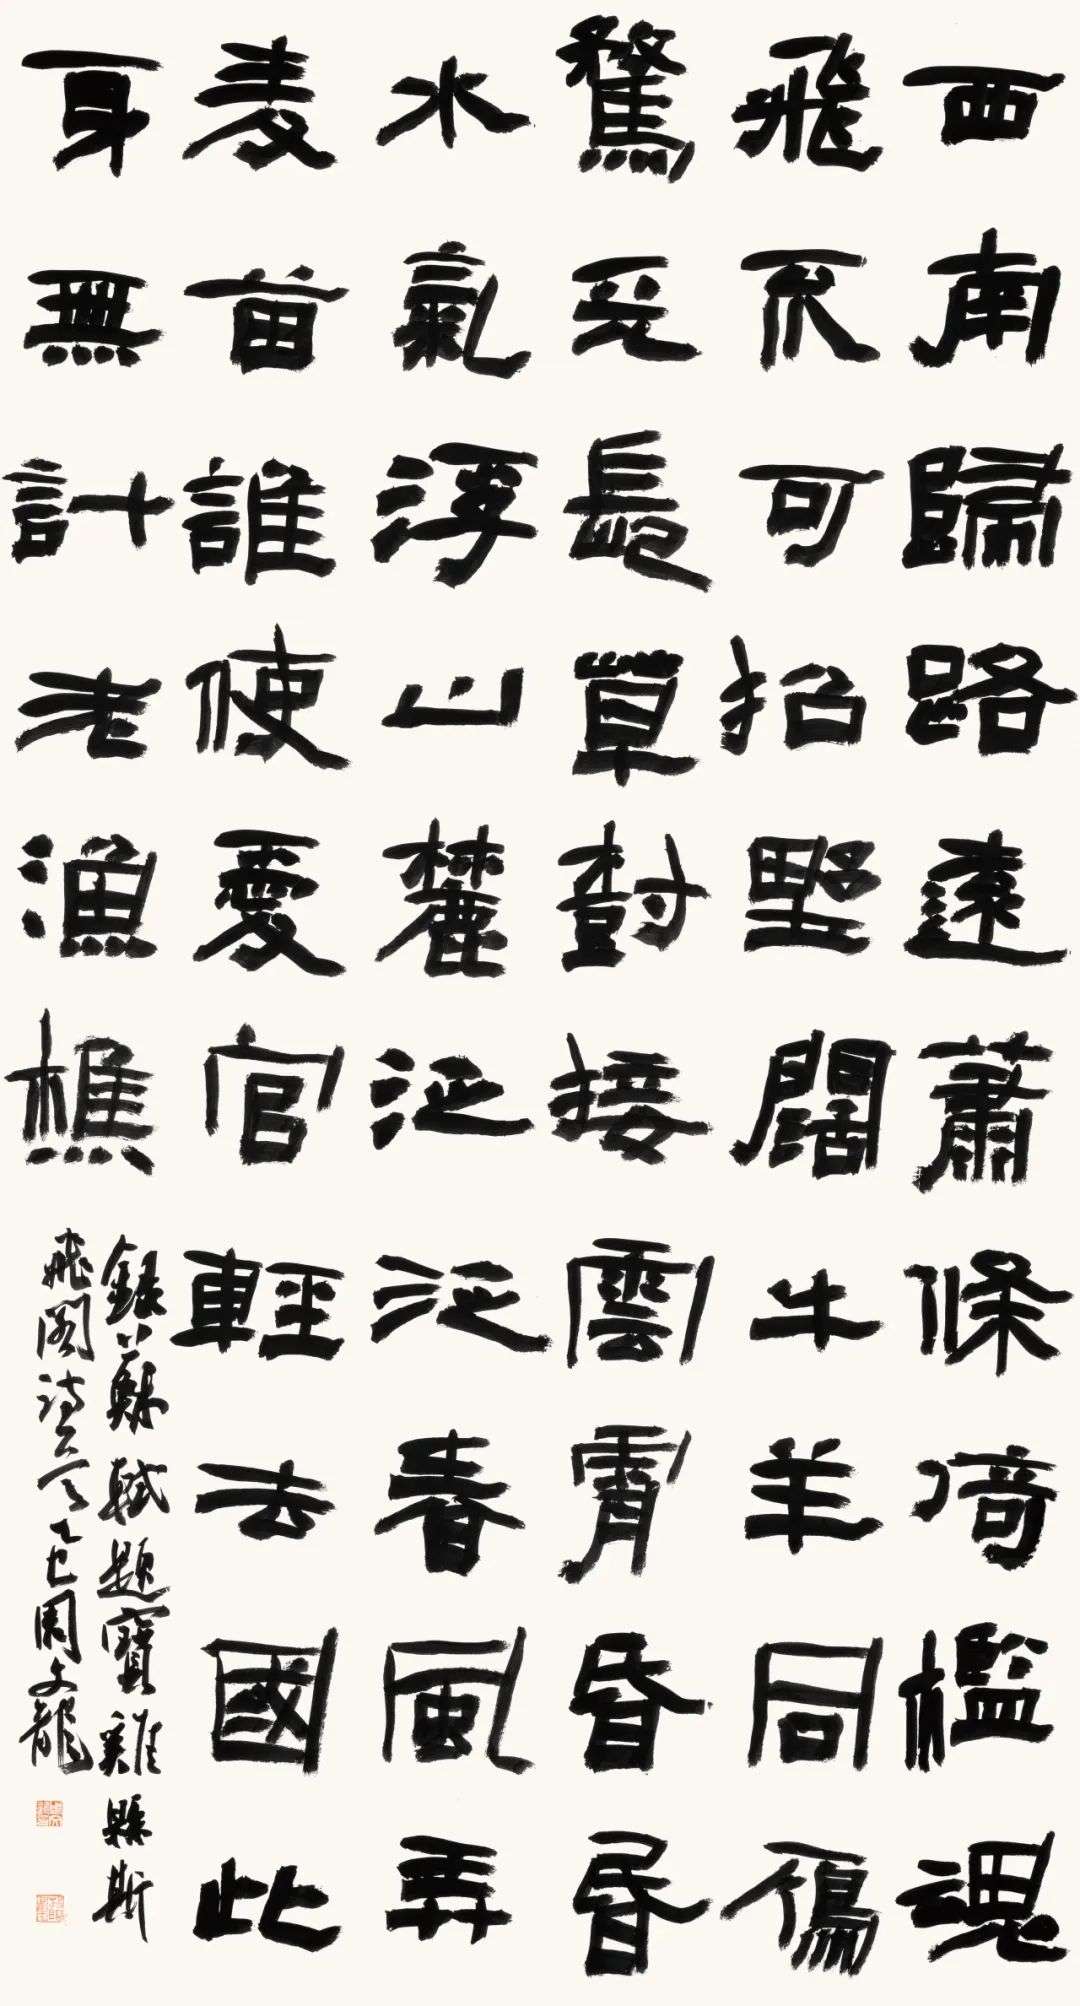 西南歸路遠蕭條倚檻魂
飛不可招野闊牛羊同鴈
鶩天長草樹接雲霄昏昏
水氣浮山麓泛泛春風弄
麥苗誰使愛官輕去國此
身無計老漁樵
錄蘇軾題寶雞縣斯
飛閣詩乙巳周文龍